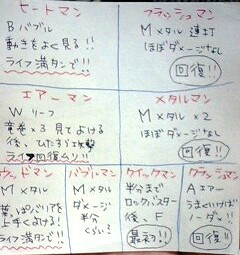 ヒートマン
Bバブル
動きをよく見る!!
ライフ満タンで!!
フラッシュマン
Mメタル 連打
ほぼダメージなし
回復!!
エアーマン
Wリーフ
竜巻×3 見てよける
後、ひたすら攻撃
ライフ回復ムリ!!
メタルマン
Mメタル×2
ほぼダメージなし
回復!!
ウッドマン
Mメタル
葉っぱバリアを
上手くよける!
ライフ満タンで!!
バブルマン
Mメタル
ダメージ
半分
くらい?
クイックマン
半分まで
ロックバスター
後、F
最えう!!
クラッシュマン
Aエアー
うまくいけば
ノーダメ!!
回復!!